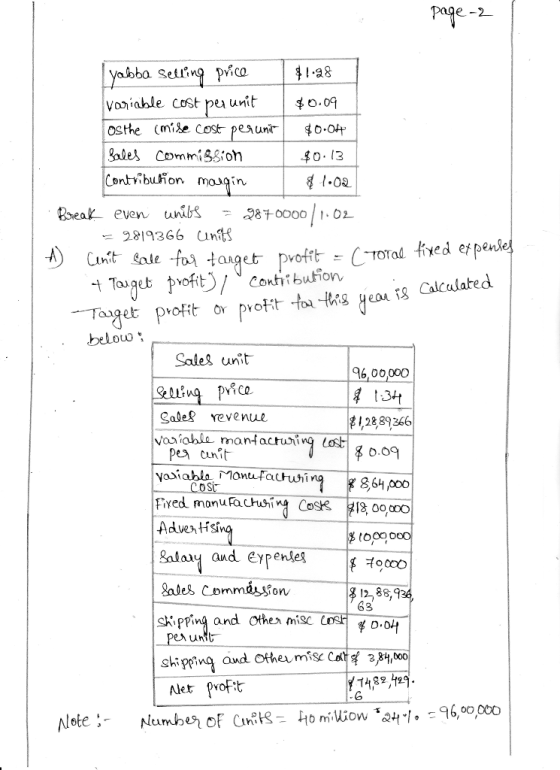 Page-2
yabba selling price $1.28
variable cost per unit $0.09
osthe (mise cost per unit $0.04
Sales Commission $0.13
Contribution margin $1.02
Break even units = 2870000/1.02
= 2819366 units
A) Unit Sale for target profit = (Total fixed expenses
+ Target profit) / Contribution
Target profit or profit for this year is Calculated
below:
Sales unit 96,00,000
Selling price $1.34
Sales revenue $1,28,89,366
variable manfacturing cost per unit $0.09
variable Manufacturing cost $8,64,000
Fixed manufacturing Costs $18,00,000
Advertising $10,00,000
Salary and Expenses $70,000
Sales Commission $12,88,936,63
Shipping and other misc Cost per unit $0.04
shipping and other misc Cost $3,84,000
Net profit $74,82,429.6
Note :- Number of Units = 40 million * 24% = 96,00,000